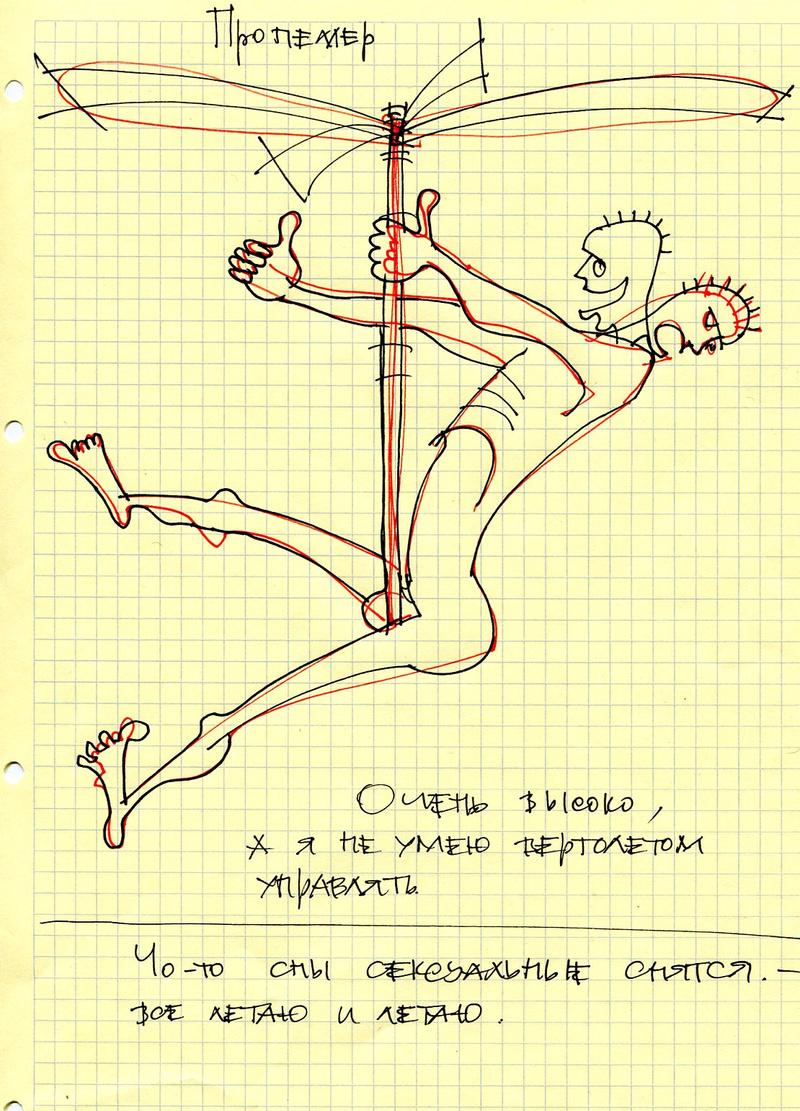 Пропеллер
Очень высоко,
а я не умею вертолетом
управлять.
Чо-то сны сексуальные снятся. -
все летаю и летаю.